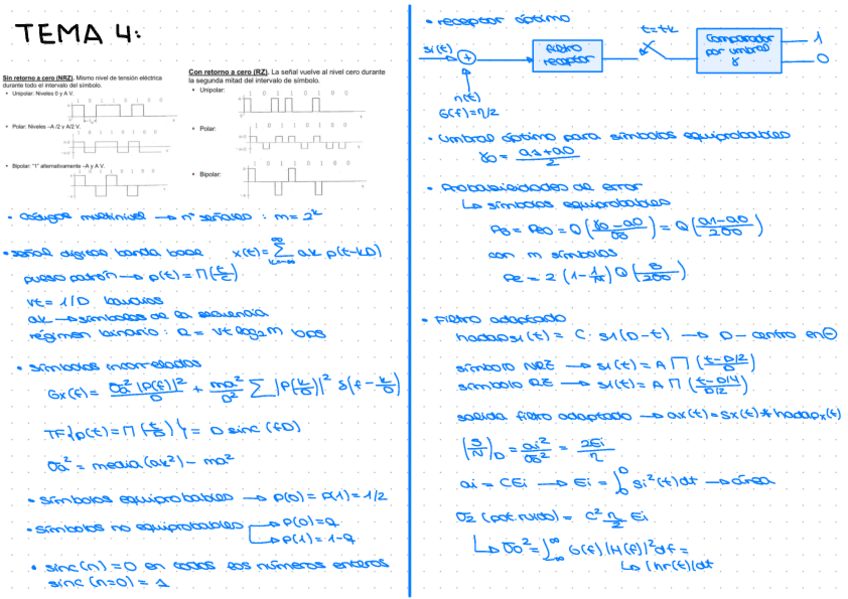 TEMA 4:
Sin retorno a cero (NRZ). Mismo nivel de tensión eléctrica
durante todo el intervalo del símbolo.
• Unipolar: Niveles 0 y A V.
1 0 1 1 0 1 0 0
• Polar: Niveles –A /2 y A/2 V.
1 0 1 1 0 1 0 0
• Bipolar: "1" alternativamente –A y A V.
1 0 1 1 0 1 0 0
Con retorno a cero (RZ). La señal vuelve al nivel cero durante
la segunda mitad del intervalo de símbolo.
• Unipolar:
1 0 1 1 0 1 0 0
• Polar:
1 0 1 1 0 1 0 0
• Bipolar:
1 0 1 1 0 1 0 0
• códigos multinivel → nº señales : m = 2^k
• señal digital banda base x(t) = ∑ ak p(t-kD)
pulso patrón → p(t) = Π(t/τ)
vt = 1/D baudios
ak → símbolos de la secuencia
régimen binario : R = vt log2 m bps
• símbolos incorrelados
Gx(f) = σa² |P(f)|²/D + ma²/D² ∑ |P(k/D)|² δ(f - k/D)
TF{p(t) = Π(t/D)} = D sinc (fD)
σa² = media (ak²) - ma²
• símbolos equiprobables → P(0) = P(1) = 1/2
• símbolos no equiprobables → P(0) = Q
→ P(1) = 1-Q
• sinc(n) = 0 en todos los números enteros
sinc (n=0) = 1
• receptor óptimo
si(t)
+
filtro
receptor
t = tk
Comparador
por umbral
γ
1
0
n(t)
G(f) = η/2
• Umbral óptimo para símbolos equiprobables
γ0 = a1+a0/2
• Probabilidades de error
↳ símbolos equiprobables
Pe = Pe0 = Q(γ0-a0/σ0) = Q(a1-a0/2σ0)
con m símbolos
Pe = 2 (1-1/M) Q(B/2σ0)
• Filtro adaptado
hadap si(t) = C · si(D-t) → D- centro en ⊖
símbolo NRZ → si(t) = A Π (t-D/2/D)
símbolo RZ → si(t) = A Π (t-D/4/D/2)
salida filtro adaptado → ax(t) = Sx(t) * hadapx(t)
(S/N)D = ai²/σ0² = 2Ei/η
ai = CEi → Ei = ∫ si²(t)dt → área
σ2 (pot ruido) = C² η/2 Ei
↳ σ0² = ∫ G(f) |H(f)|² df =
↳ |hr(t)|dt